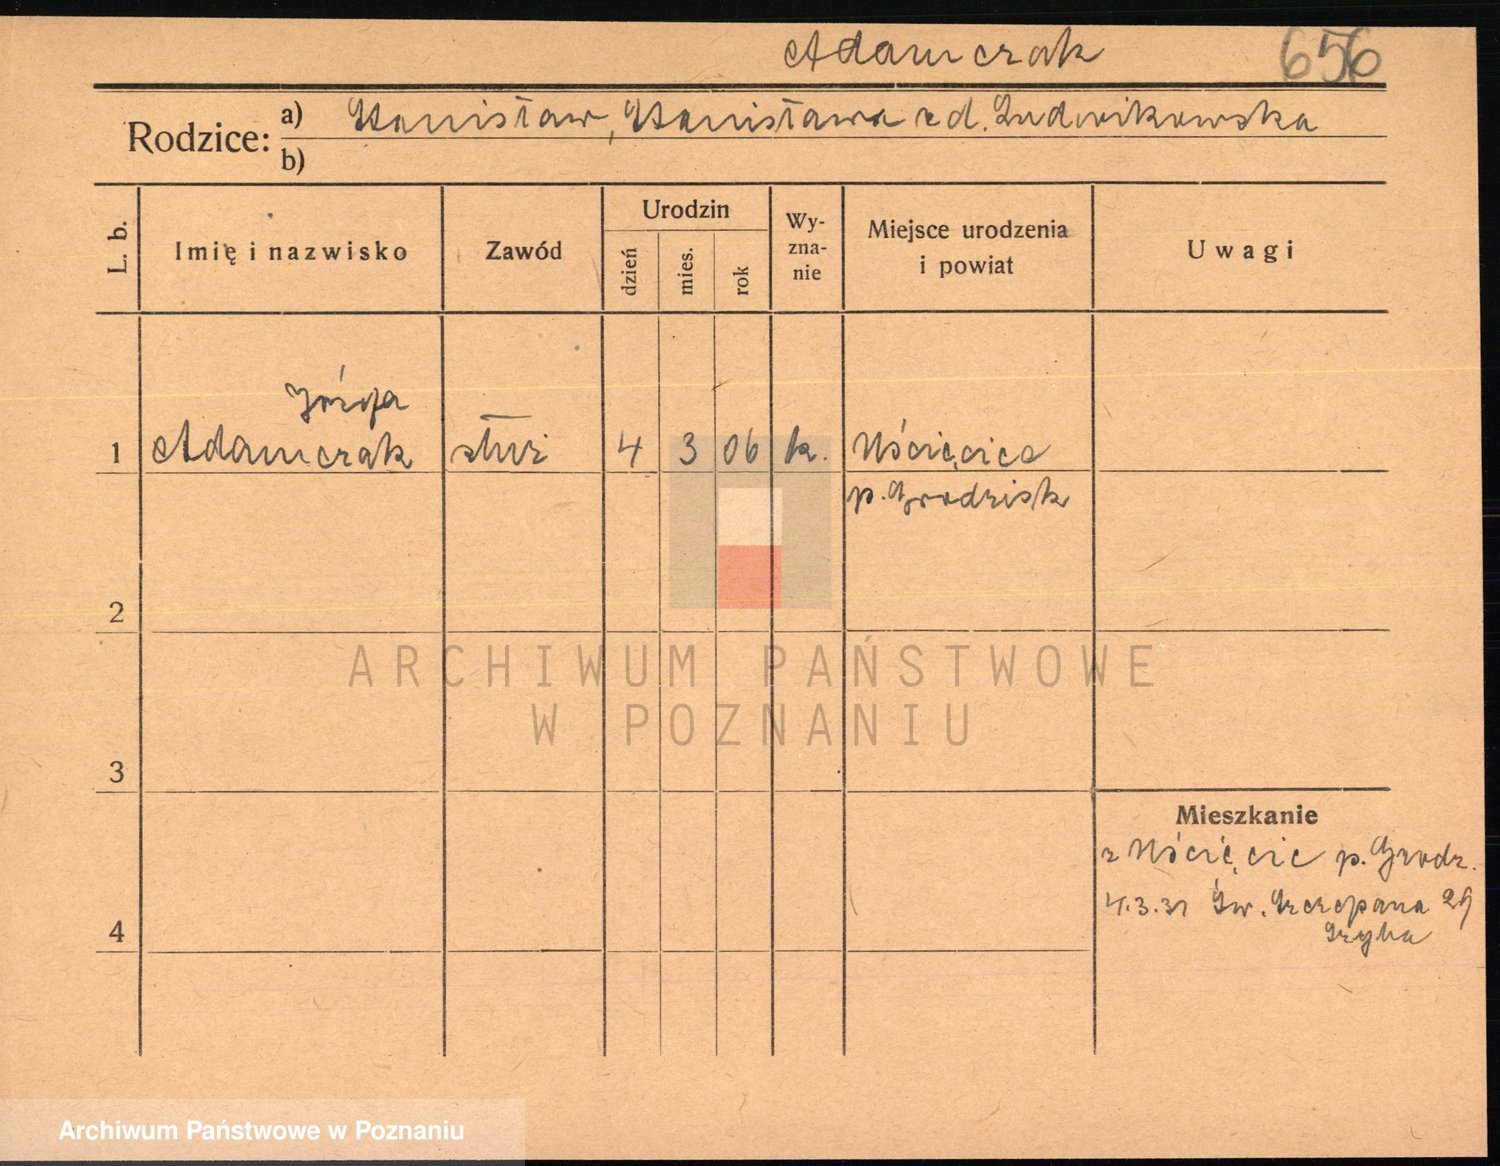 Adamczak 656
Rodzice: a) Stanisław, Stanisława z d. Ludwikowska
b)
L. b. Imię i nazwisko Zawód Urodzin dzień mies. rok Wy-zna-nie Miejsce urodzenia i powiat Uwagi
Józefa
1 Adamczak służ 4 3 06 k. Uścięcice
p. Grodzisk
2
ARCHIWUM PAŃSTWOWE
W POZNANIU
3
Mieszkanie
z Uścięcic p. Grodz.
4.3.31 Św. Szczepana 29
4
Archiwum Państwowe w Poznaniu